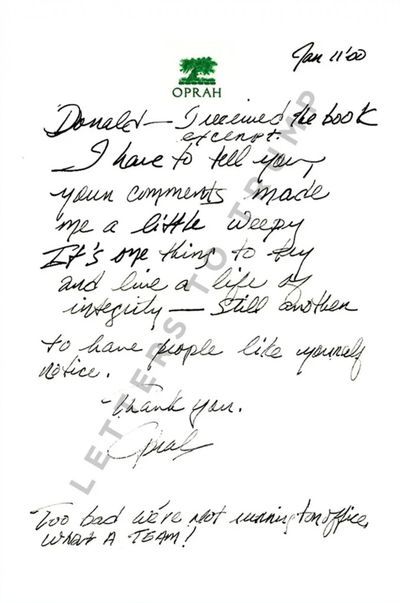 Jan 11'00
OPRAH
Donald — I received the book
excerpt.
I have to tell you,
your comments made
me a little weepy
It's one thing to try
and live a life of
integrity — still another
to have people like yourself
notice.
-Thank you.
Oprah
Too bad we're not running for office,
WHAT A TEAM!
LETTERS TO TRUMP